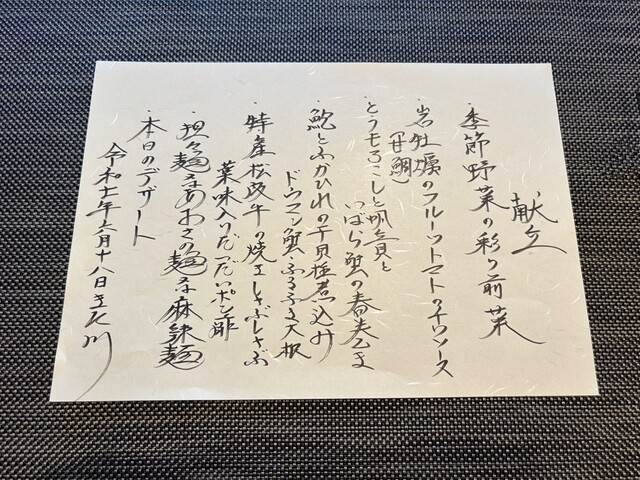 献立
・季節野菜の彩り前菜
・岩牡蠣のフルーツトマトのチリソース
(甘鯛)
・とうもろこしと帆立貝と
いばら蟹の春巻
・鮑とふかひれの干貝柱煮込み
ドウマン蟹・ふるふき大根
・特産松阪牛の焼しゃぶしゃぶ
薬味入りだいだいポン酢
・担々麺
あおさの麺
麻辣麺
・本日のデザート
令和七年六月十八日